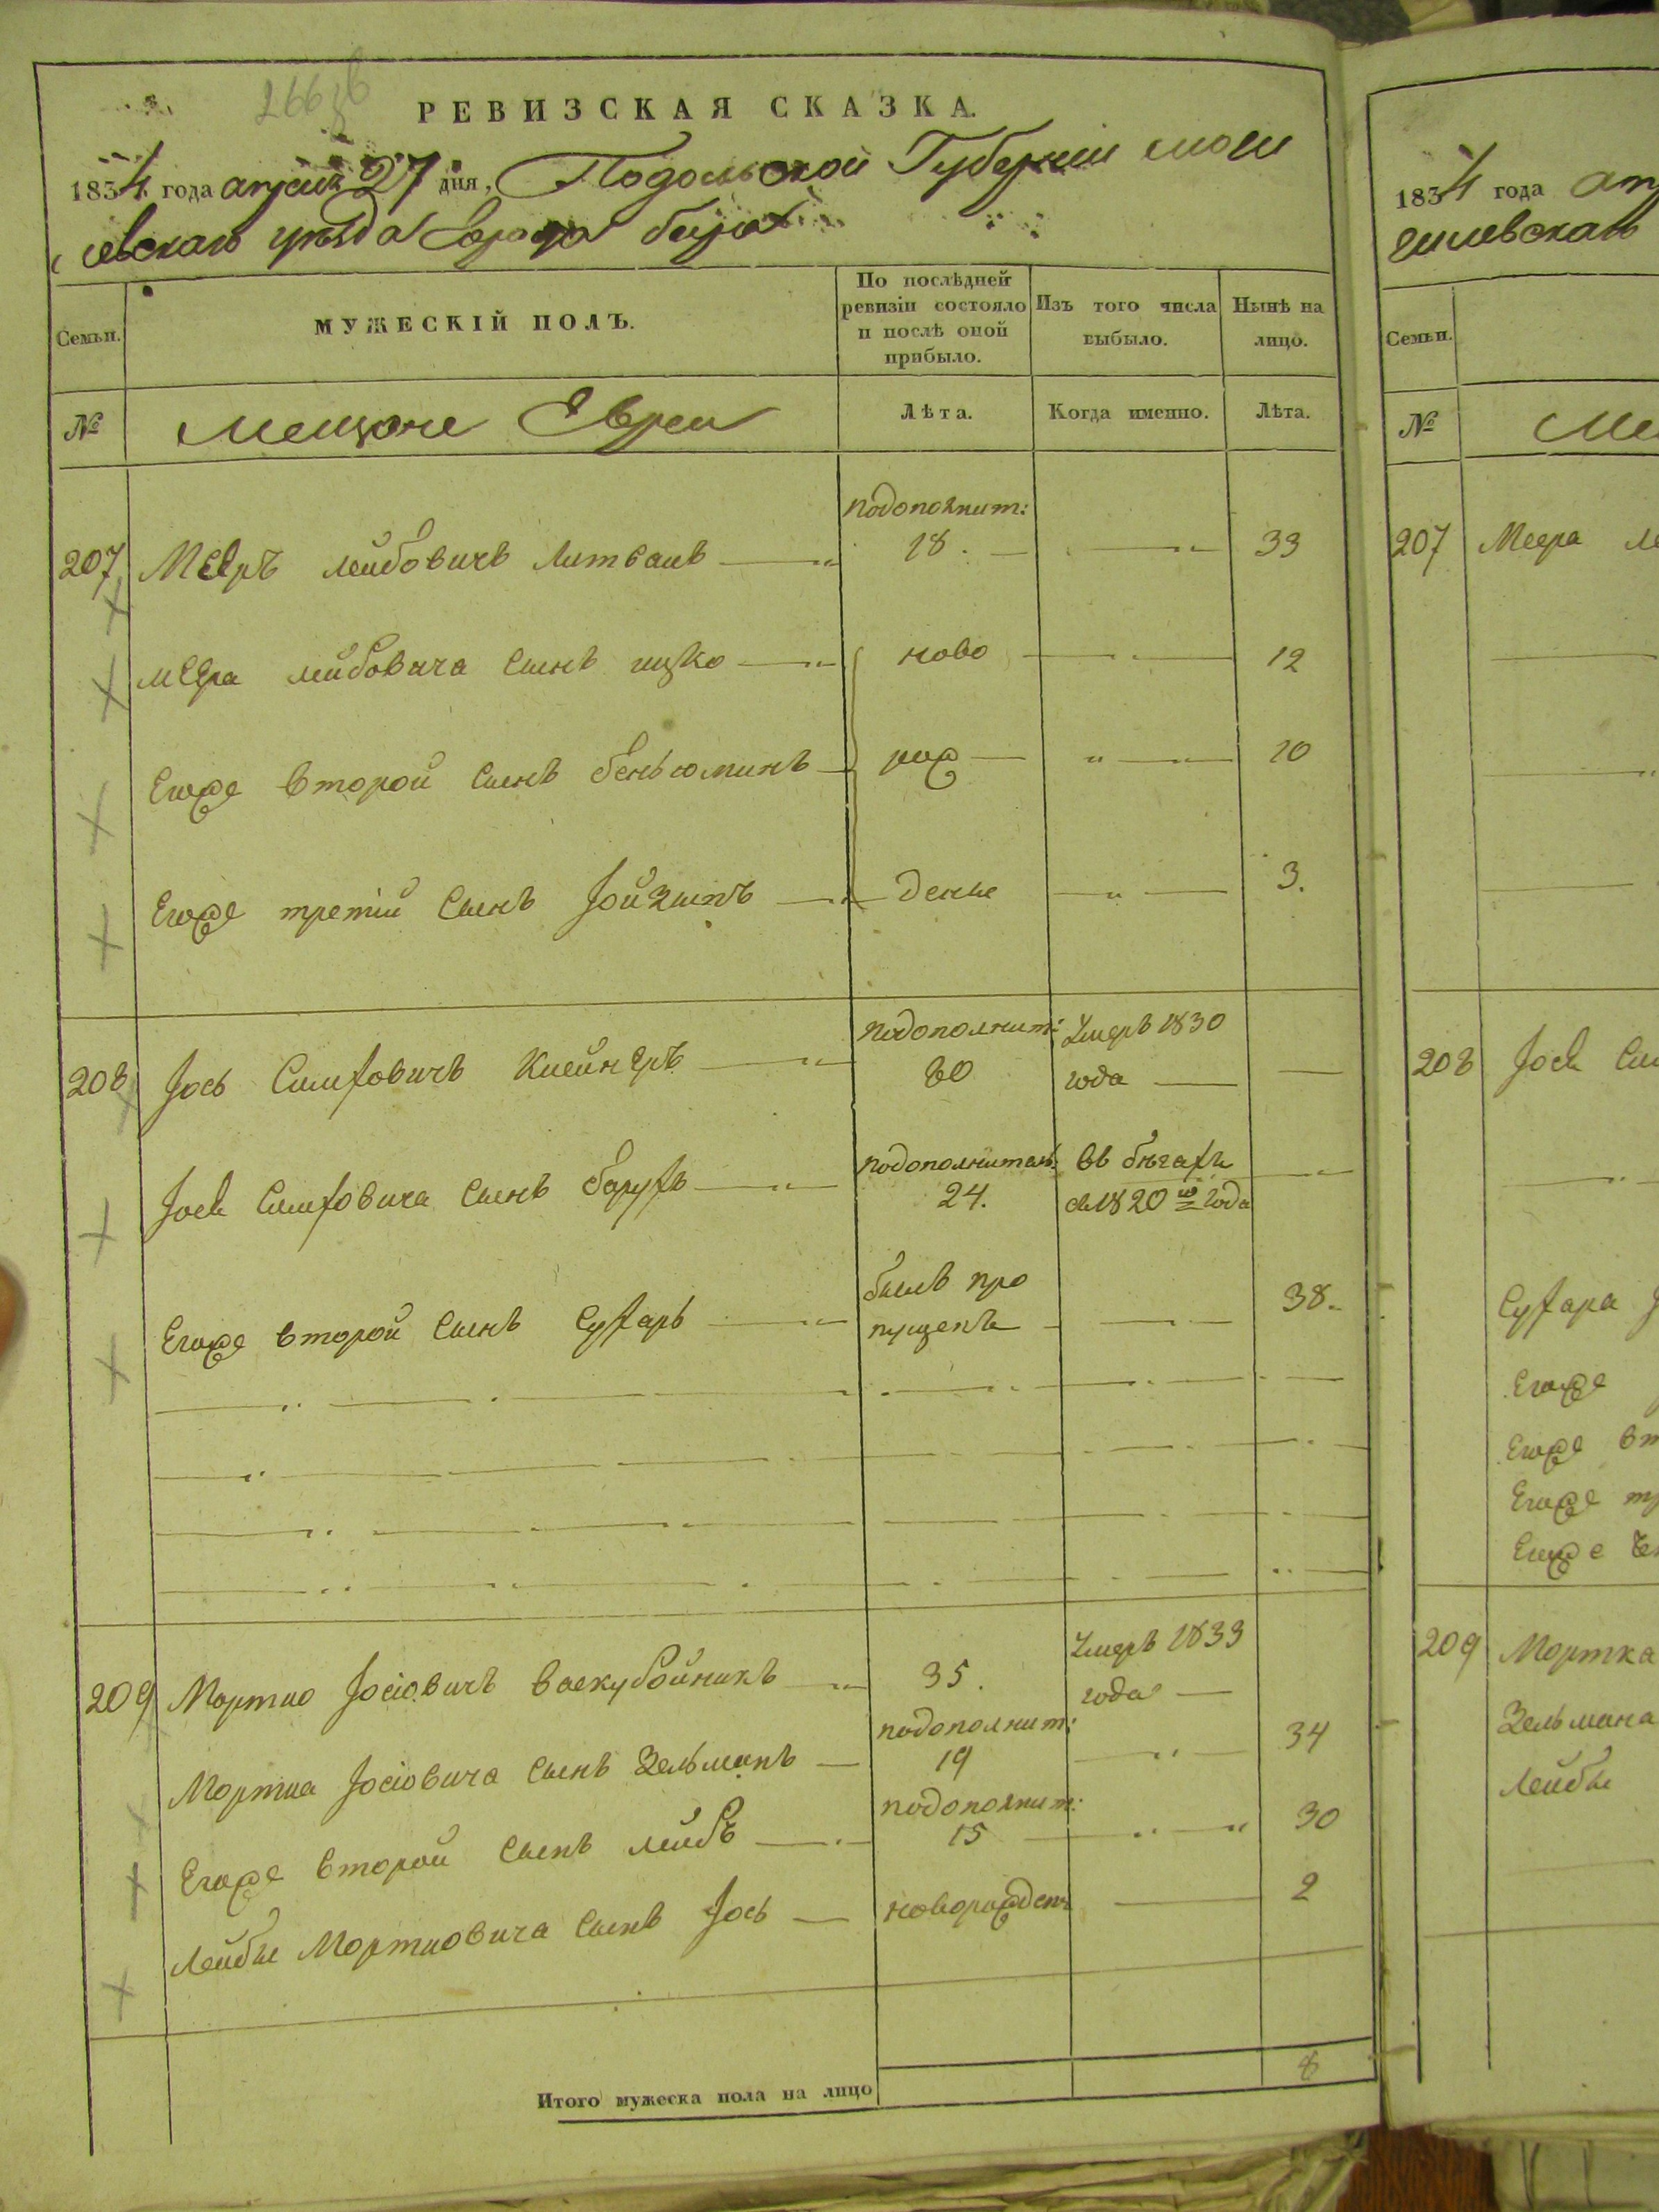 266 зв
РЕВИЗСКАЯ СКАЗКА.
1834 года апреля 27 дня, Подольской Губернии моги
левскаго уезда города бара
Семьи.
МУЖЕСКІЙ ПОЛЪ.
По послѣдней ревизіи состояло и послѣ оной прибыло.
Изъ того числа выбыло.
Нынѣ на лицо.
№
Мещане Евреи
Лѣта.
Когда именно.
Лѣта.
207 Мееръ лейбовичъ Литвакъ подополнит: 18. 33
меера лейбовича сынъ ицко ново 12
Егоже второй сынъ беньюминъ рож 10
Егоже третий сынъ Іойзыпъ деные 3.
208 Іось Симховичъ Клейнеръ подополнит: 60 Умеръ 1830 года
Іося Симховича сынъ барухъ подополнител: 24. въ бѣгахъ съ 1820го года
Егоже второй сынъ Сухаръ былъ пропущенъ 38.
209 Мортко Іосіовичъ 35. Умеръ 1833 года
Мортка Іосіовича сынъ Зельманъ подополнит: 19 34
Егоже второй сынъ лейбъ подополнит: 15 30
Лейбы Мортковича сынъ Іось новорожден 2
Итого мужеска пола на лицо 8
1834 года
гилевскаго
Семьи.
№
207 Меера
208 Іося
Сухара
Егоже
Егоже
Егоже
Егоже
209 Мортка
Зельмана
Лейбы